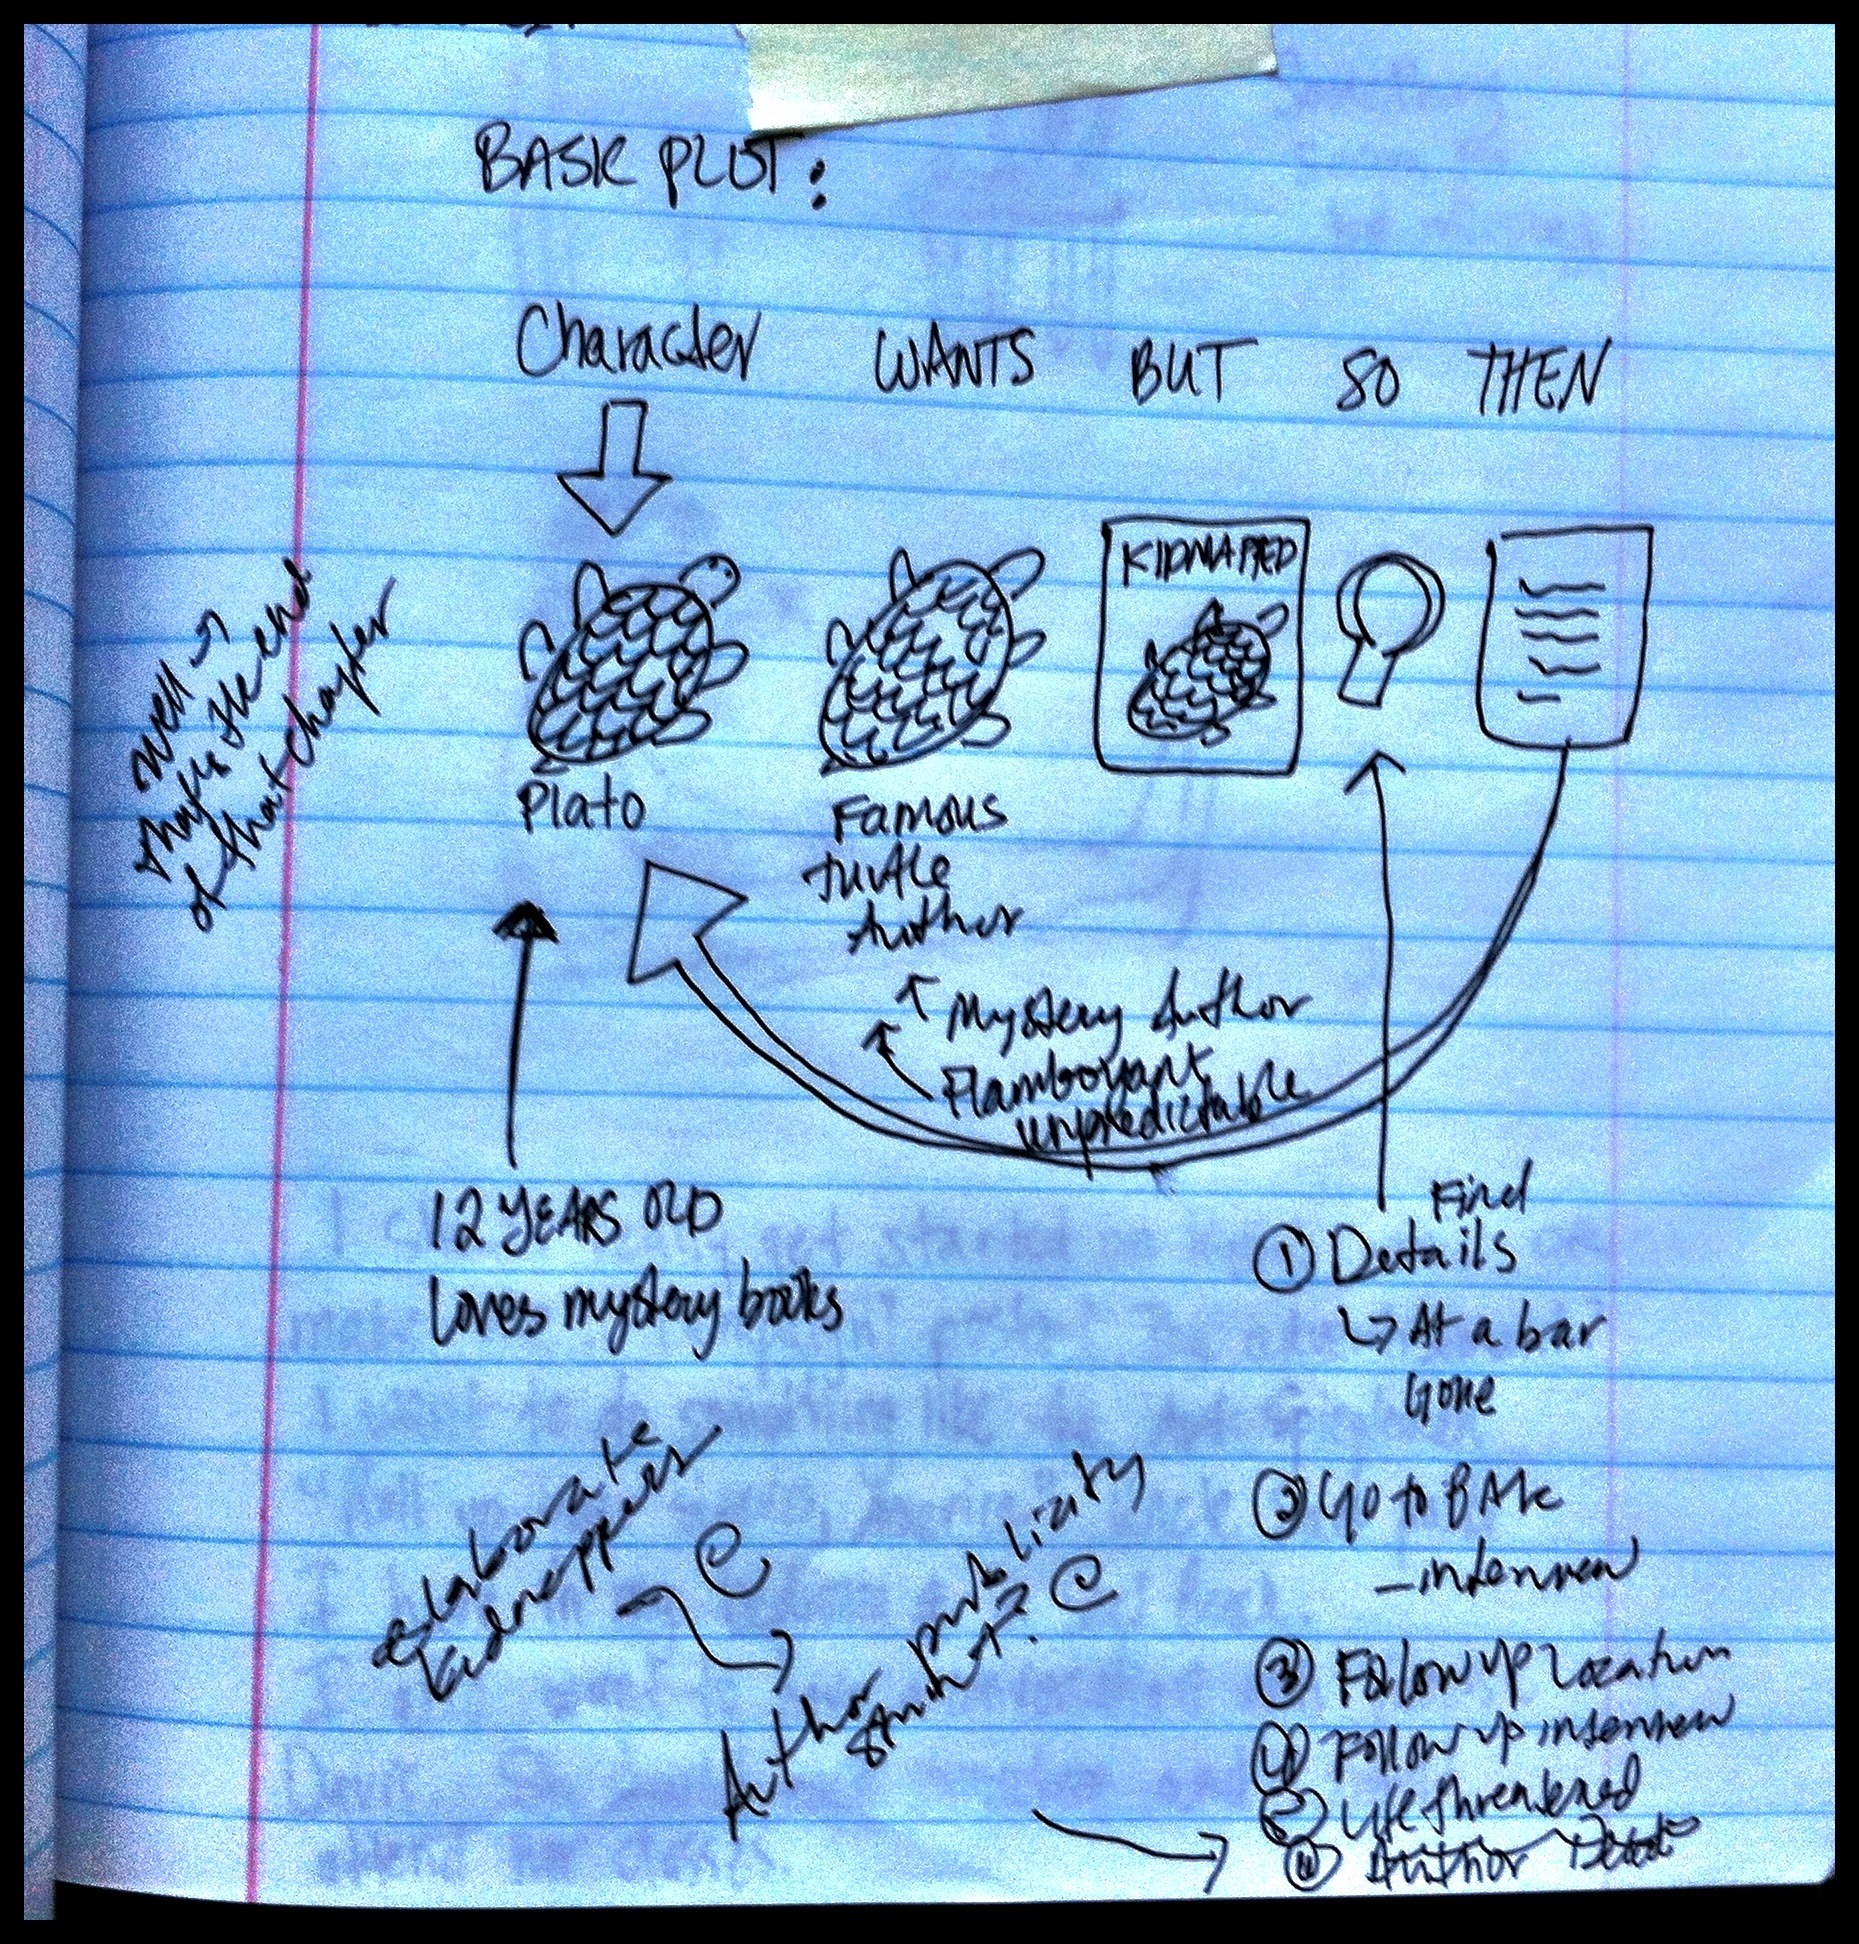 BASIC PLOT:
Character WANTS BUT SO THEN
KIDNAPPED
well →
that's the end
of that chapter
Plato
Famous
turtle
Author
Mystery Author
Flamboyant
unpredictable
12 YEARS OLD
Loves mystery books
Find
① Details
↳ At a bar
Gone
② Go to BAR
- interview
③ Follow up location
④ Follow up interview
⑤ Life threatened
Author
elaborate
kidnappers
Author publicity
stunt?